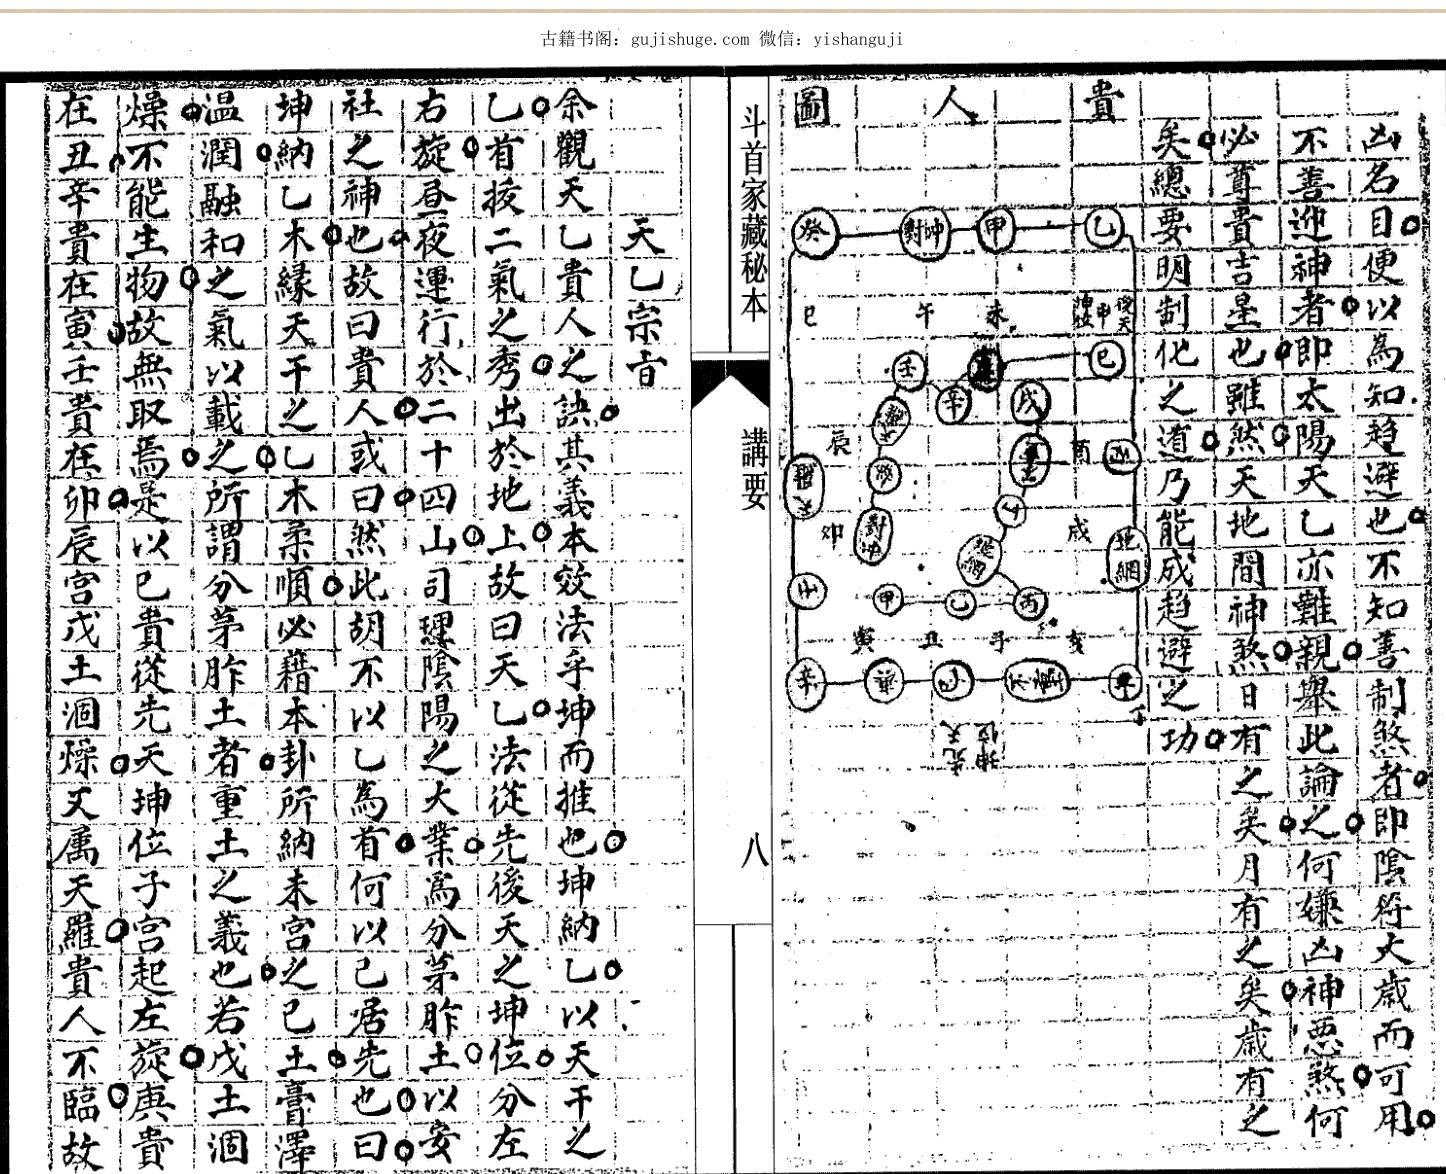 古籍书阁：gujishuge.com 微信：yishanguji
凶名目便以為知趨避也不知善制煞者即陰符太歲而可用
不善迎神者即太陽天乙亦難親舉此論之何嫌凶神惡煞何
必尊貴吉星也雖然天地間神煞日有之矣月有之矣歲有之
矣總要明制化之道乃能成趨避之功
貴人圖
乙
甲
對冲
癸
後天
申
坤位
未
午
巳
壬
辛
戊
酉
辰
癸
卯
對冲
戌
地網
壬
甲
乙
丙
亥
子
丑
寅
辛
丁
先天
坤位
斗首家藏秘本
講要
八
天乙宗旨
余觀天乙貴人之訣其義本效法乎坤而推也坤納乙以天干之
乙首按二氣之秀出於地上故曰天乙法從先後天之坤位分左
右旋昼夜運行於二十四山司理陰陽之大業為分茅胙土以安
社之神也故曰貴人或曰然此胡不以乙為首何以己居先也曰
坤納乙木緣天干之乙木柔順必藉本卦所納未宮之己土膏澤
温潤融和之氣以載之所謂分茅胙土者重土之義也若戊土涸
燥不能生物故無取焉是以己貴從先天坤位子宮起左旋庚貴
在丑辛貴在寅壬貴在卯辰宮戊土涸燥又属天羅貴人不臨故